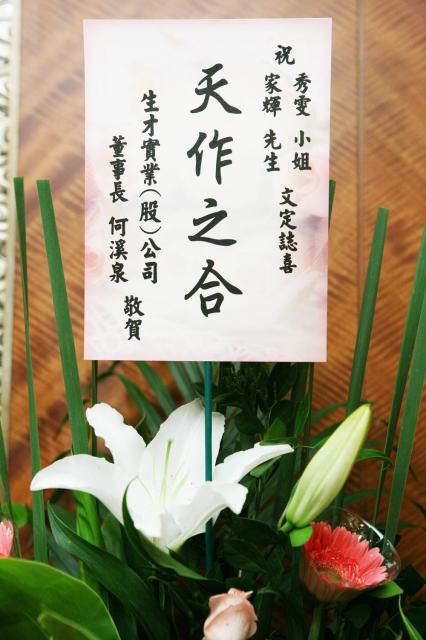 祝
秀雯 小姐
家輝 先生
文定誌喜
天作之合
生才實業(股)公司
董事長 何溪泉
敬賀